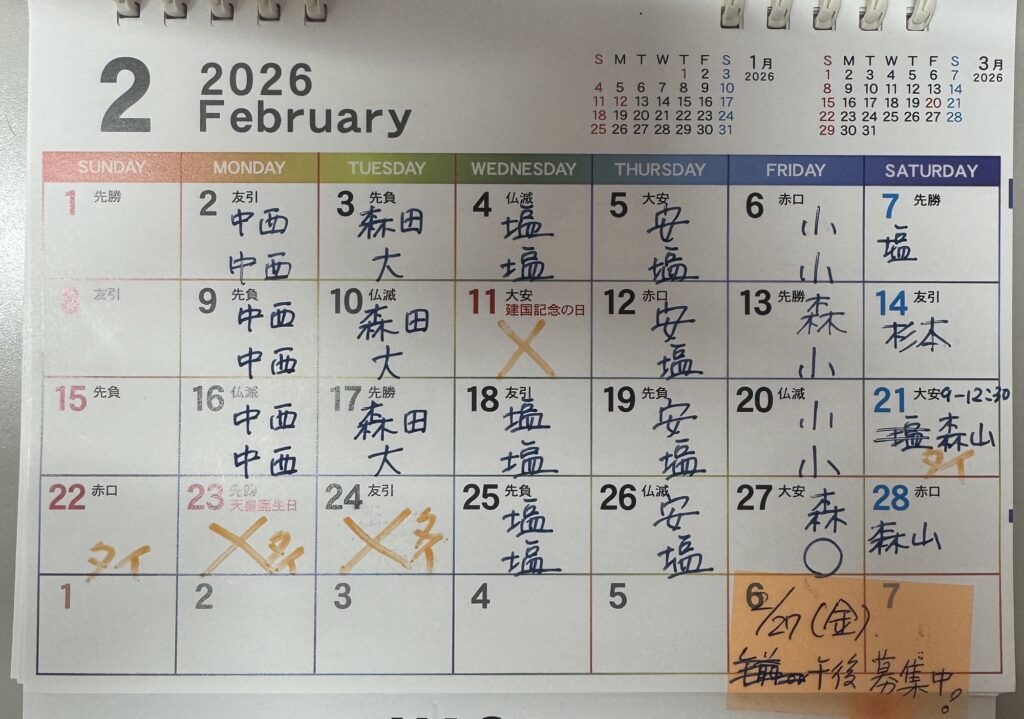 2
2026
February
S M T W T F S
1 2 3
4 5 6 7 8 9 10
11 12 13 14 15 16 17
18 19 20 21 22 23 24
25 26 27 28 29 30 31
1月
2026
S M T W T F S
1 2 3 4 5 6 7
8 9 10 11 12 13 14
15 16 17 18 19 20 21
22 23 24 25 26 27 28
29 30 31
3月
2026
SUNDAY MONDAY TUESDAY WEDNESDAY THURSDAY FRIDAY SATURDAY
1 先勝
2 友引
中西
中西
3 先負
森田
大
4 仏滅
塩
塩
5 大安
安
塩
6 赤口
小
小
7 先勝
塩
8 友引
9 先負
中西
中西
10 仏滅
森田
大
11 大安
建国記念の日
12 赤口
安
塩
13 先勝
森
小
14 友引
杉本
15 先負
16 仏滅
中西
中西
17 先勝
森田
大
18 友引
塩
塩
19 先負
安
塩
20 仏滅
小
小
21 大安 9-12:30
塩 森山
タイ
22 赤口
タイ
23 先勝
天皇誕生日
タイ
24 友引
タイ
25 先負
塩
塩
26 仏滅
安
塩
27 大安
森
○
28 赤口
森山
1 2 3 4 5 6 7
2/27(金)
午後 募集中!